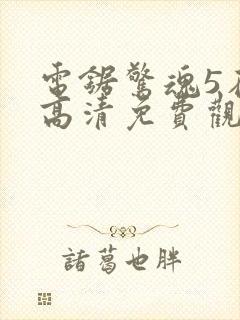 電鋸驚魂5在
高清免費觀
諸葛也胖